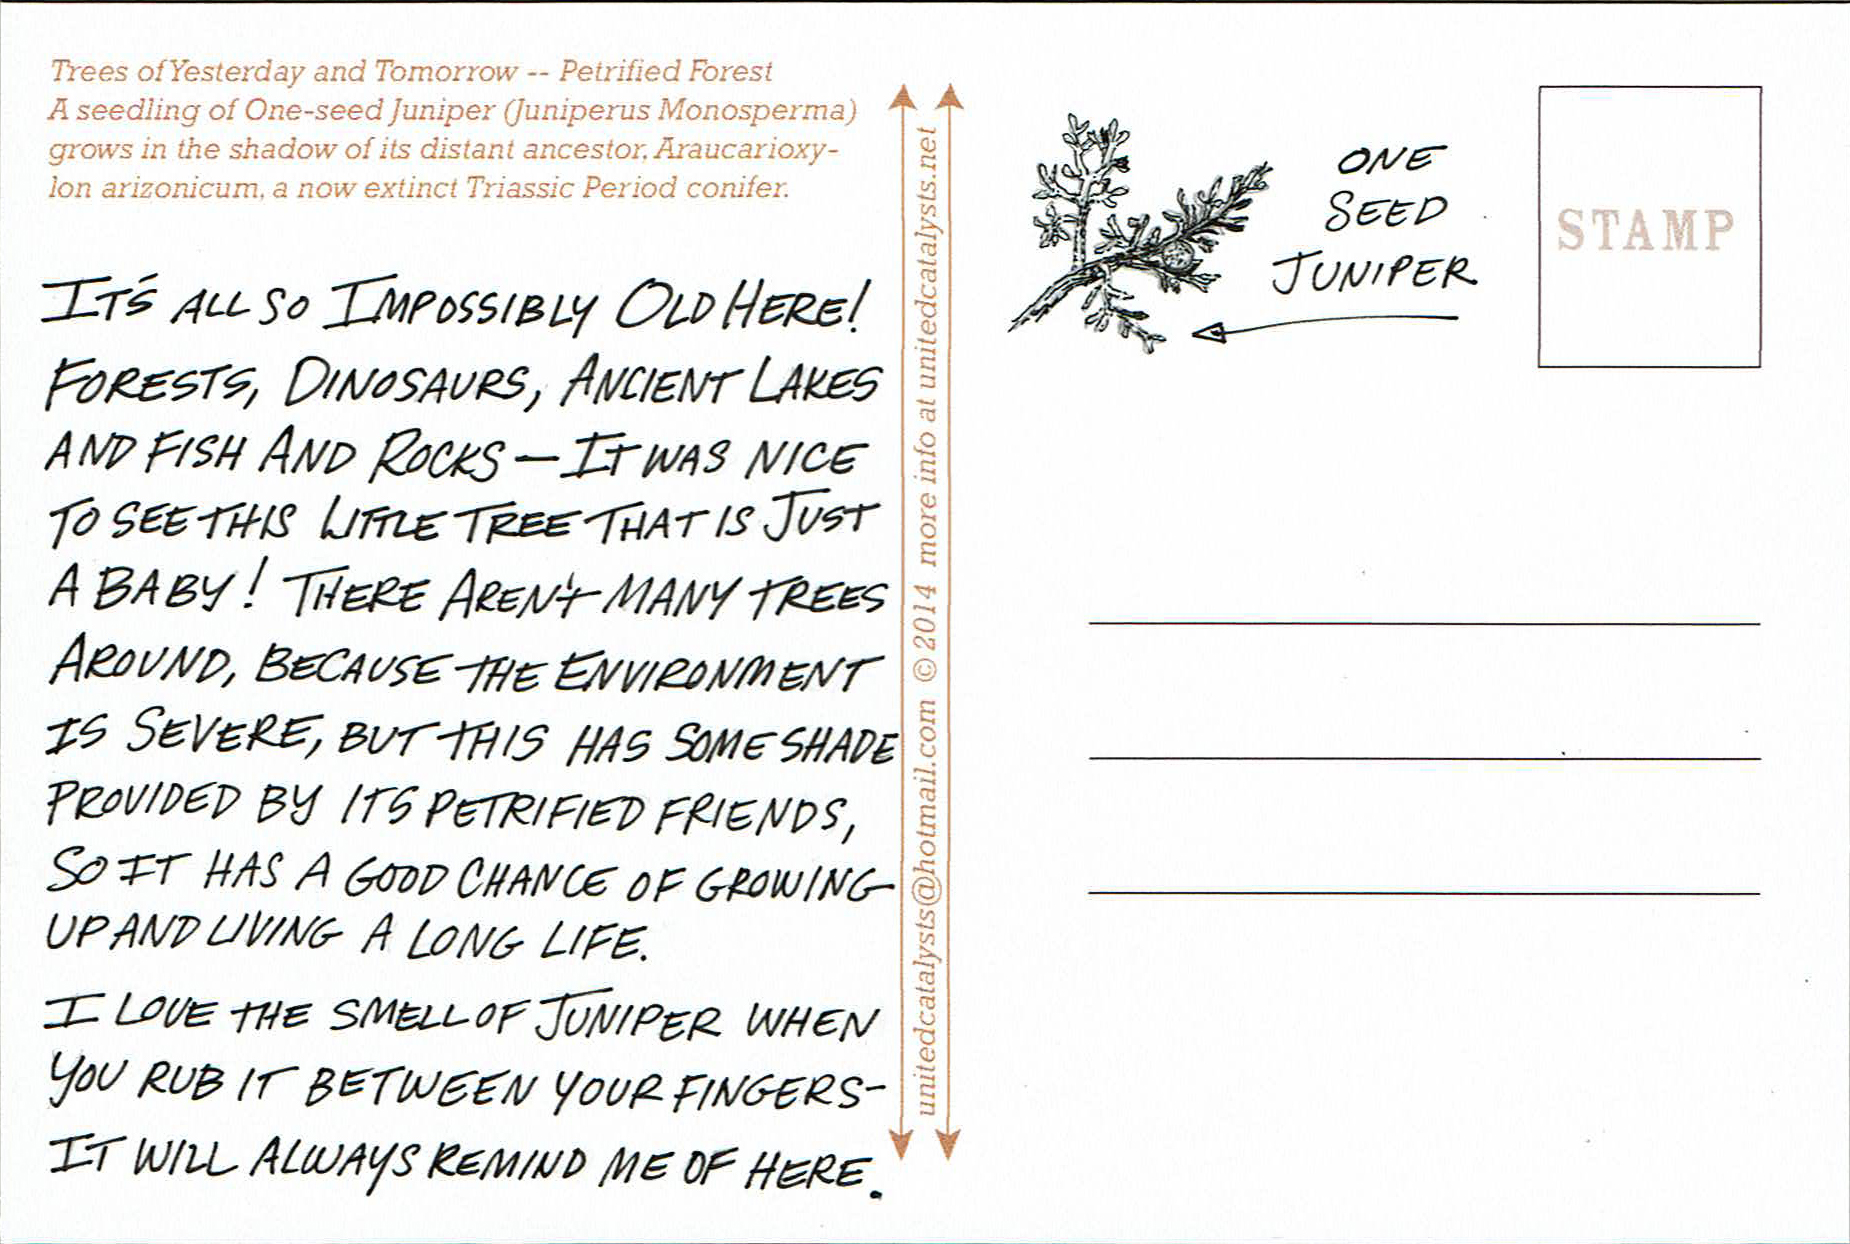 Trees of Yesterday and Tomorrow -- Petrified Forest
A seedling of One-seed Juniper (Juniperus Monosperma)
grows in the shadow of its distant ancestor, Araucarioxy-
lon arizonicum, a now extinct Triassic Period conifer.
IT'S ALL SO IMPOSSIBLY OLD HERE!
FORESTS, DINOSAURS, ANCIENT LAKES
AND FISH AND ROCKS — IT WAS NICE
TO SEE THIS LITTLE TREE THAT IS JUST
A BABY! THERE AREN'T MANY TREES
AROUND, BECAUSE THE ENVIRONMENT
IS SEVERE, BUT THIS HAS SOME SHADE
PROVIDED BY ITS PETRIFIED FRIENDS,
SO IT HAS A GOOD CHANCE OF GROWING
UP AND LIVING A LONG LIFE.
I LOVE THE SMELL OF JUNIPER WHEN
YOU RUB IT BETWEEN YOUR FINGERS-
IT WILL ALWAYS REMIND ME OF HERE.
unitedcatalysts@hotmail.com © 2014 more info at unitedcatalysts.net
ONE
SEED
JUNIPER
STAMP